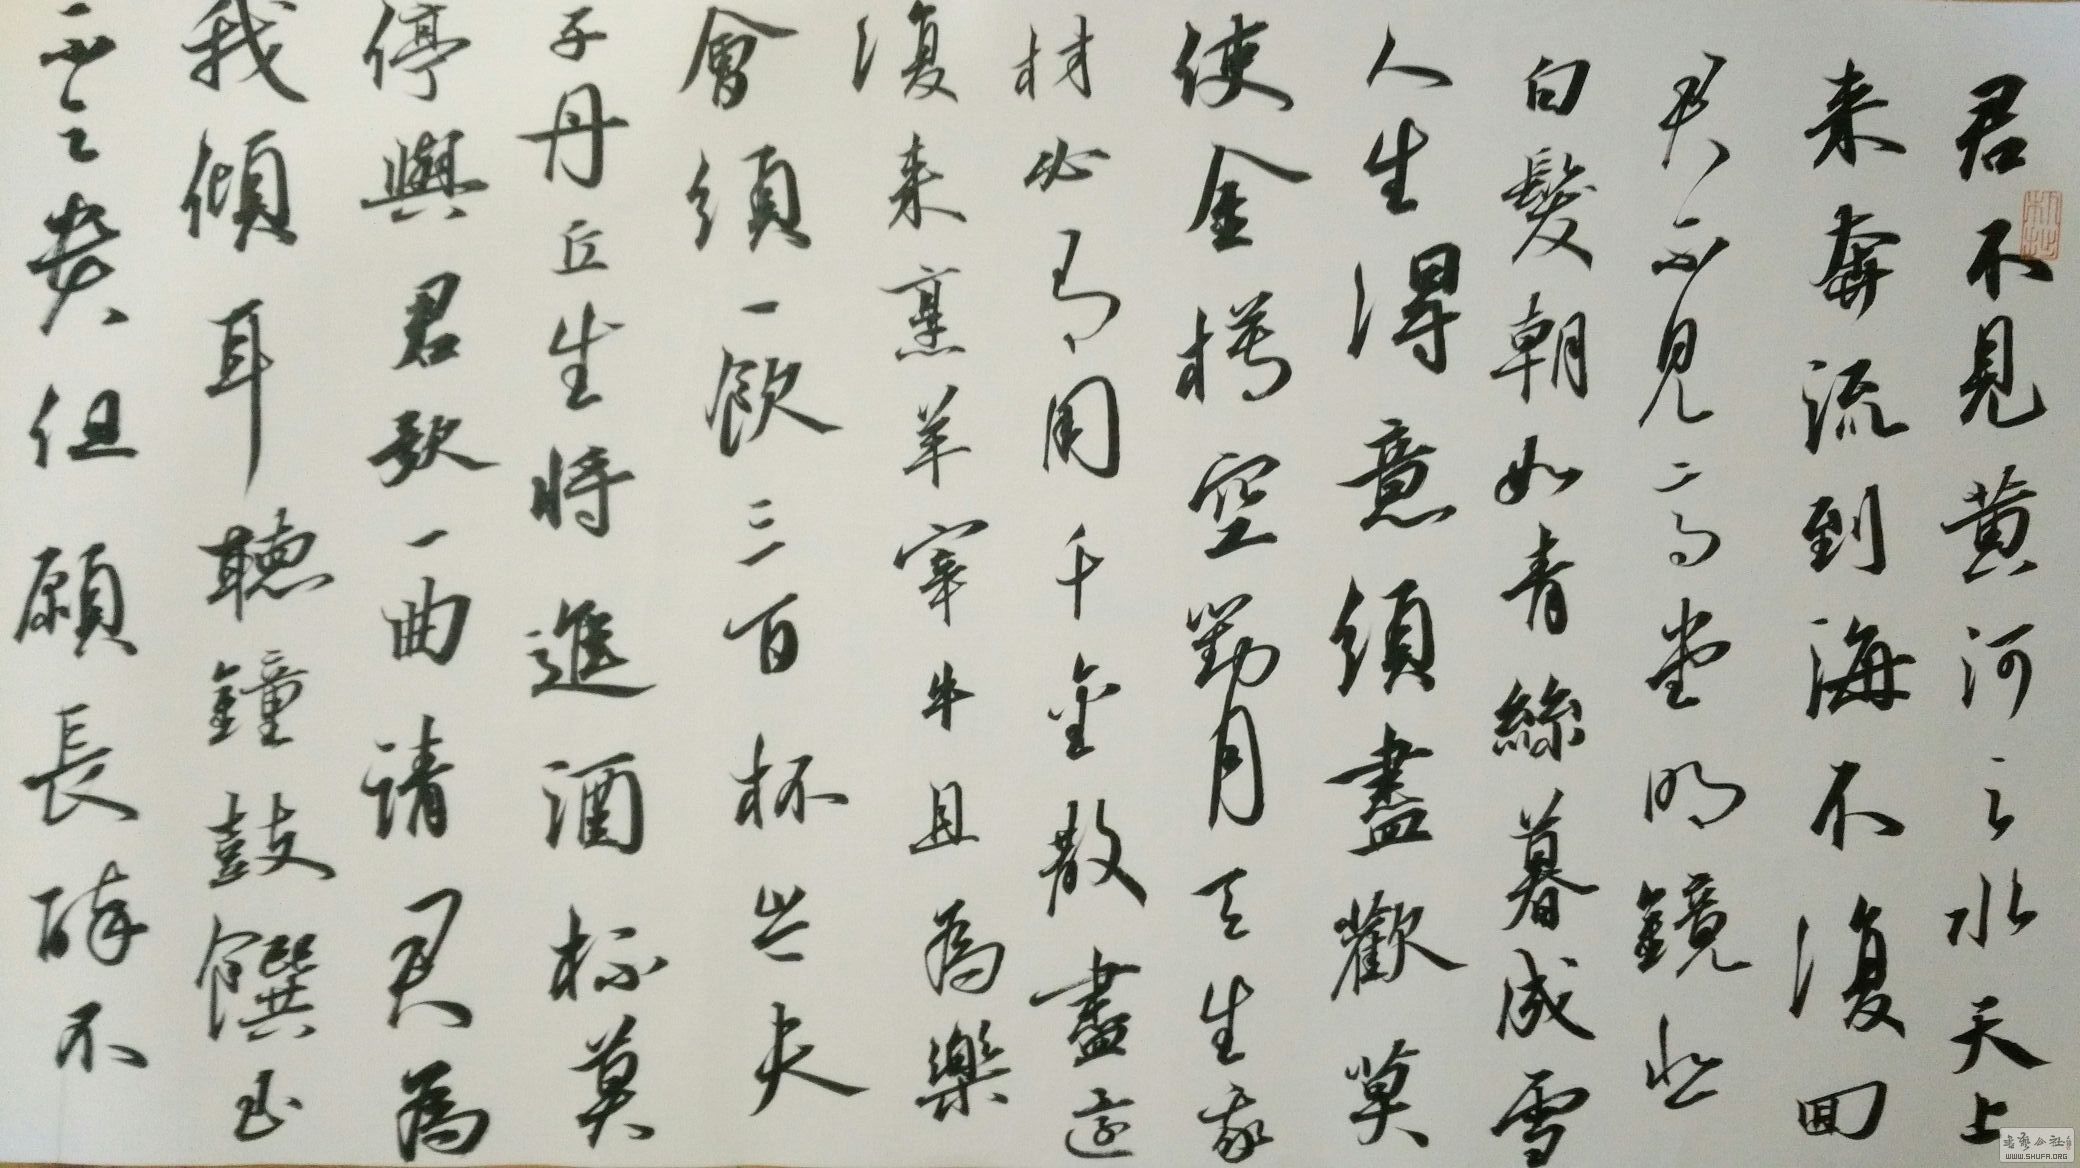 君不見黄河之水天上
来奔流到海不復回
君不見高堂明鏡悲
白髮朝如青絲暮成雪
人生得意須盡歡莫
使金樽空對月天生我
材必有用千金散盡還
復来烹羊宰牛且為樂
會須一飲三百杯岑夫
子丹丘生将進酒杯莫
停與君歌一曲請君為
我傾耳聽鐘鼓饌玉
不足貴但願長醉不
WWW.SHUFA.ORG